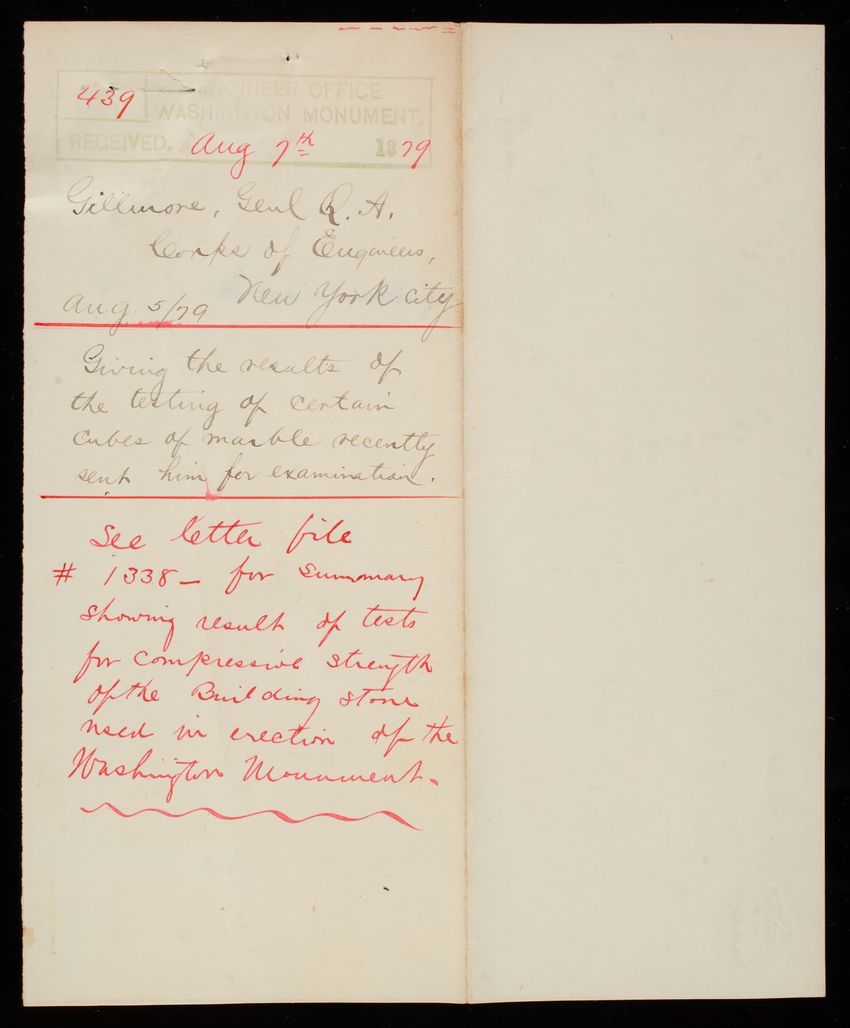 439 ENGINEER OFFICE
WASHINGTON MONUMENT.
RECEIVED, Aug 7th 1879
Gillmore, Genl Q. A.
Corps of Engineers,
New York City
Aug 5/79
Giving the results of
the testing of certain
cubes of marble recently
sent him for examination.
See letter file
# 1338 — for summary
showing result of tests
for compressive strength
of the Building stone
used in erection of the
Washington Monument.